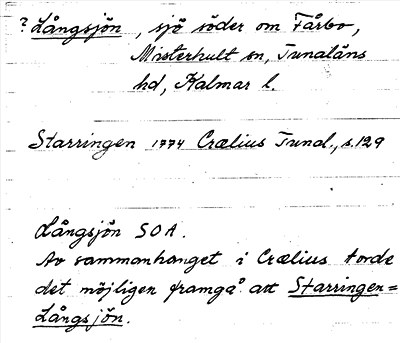 ? Långsjön, sjö söder om Fårbo,
Misterhult sn, Tunaläns
hd, Kalmar l.
Starringen 1774 Crælius Tunal., s.129
Långsjön SOA.
Av sammanhanget i Crælius torde
det möjligen framgå att Starringen=
Långsjön.